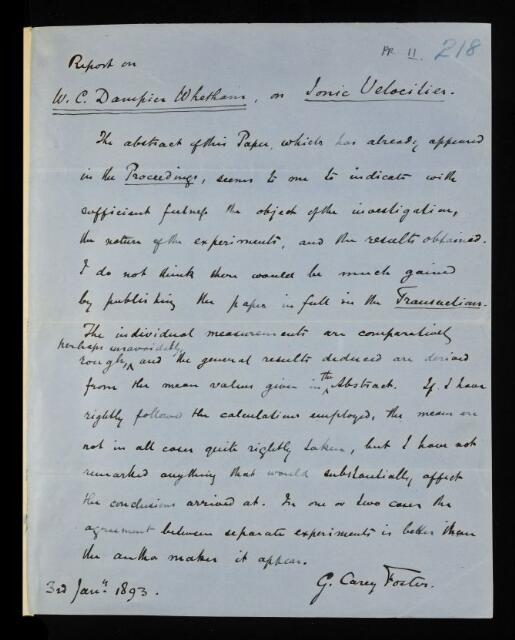 RR 11. 218
Report on
W. C. Dampier Whetham, on Ionic Velocities.
The abstract of this Paper, which has already appeared
in the Proceedings, seems to me to indicate with
sufficient fulness the object of the investigation,
the nature of the experiments, and the results obtained.
I do not think there would be much gained
by publishing the paper in full in the Transactions.
The individual measurements are comparatively
perhaps unavoidably
rough, and the general results deduced are derived
from the mean values given in the Abstract. If I have
rightly followed the calculations employed, the means are
not in all cases quite rightly taken, but I have not
remarked anything that would substantially affect
the conclusions arrived at. In one or two cases the
agreement between separate experiments is better than
the author makes it appear.
3rd Jany. 1893.
G. Carey Foster.